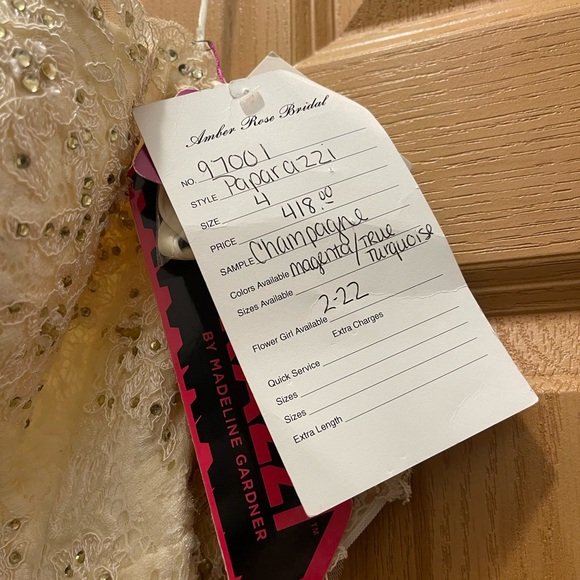 Amber Rose Bridal
NO. 97001
STYLE Paparazzi
SIZE 4
PRICE 418.00
SAMPLE Champagne
Colors Available magenta/True
Turquoise
Sizes Available 2-22
Flower Girl Available
Extra Charges
Quick Service
Sizes
Sizes
Extra Length
AZZI
BY MADELINE GARDNER
TM